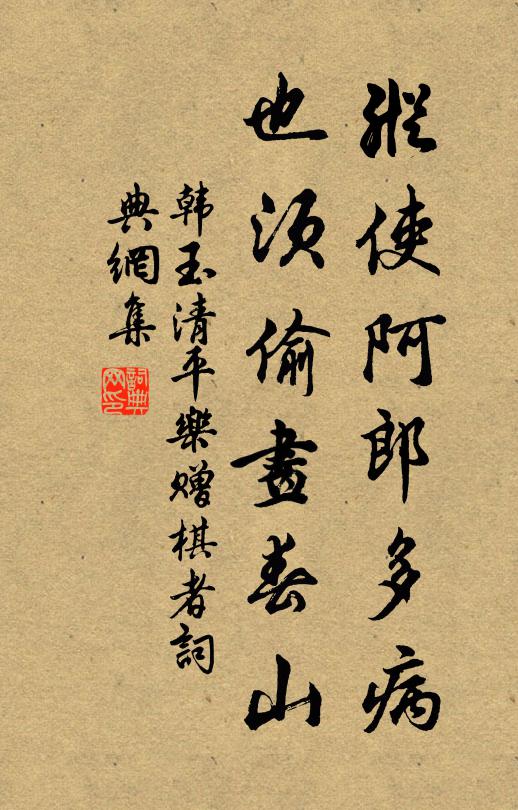 縱使阿郎多病
也須偷畫春山
韩玉清平樂赠棋者詞
典網集
詞典網印